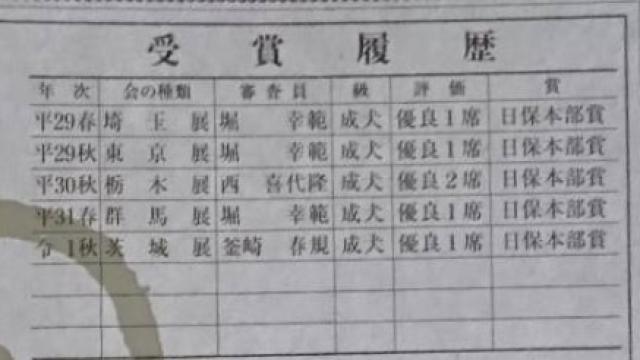 受賞履歴
年次 会の種類 審査員 級 評価 賞
平29春 埼玉展 堀 幸範 成犬 優良1席 日保本部賞
平29秋 東京展 堀 幸範 成犬 優良1席 日保本部賞
平30秋 栃木展 西 喜代隆 成犬 優良2席 日保本部賞
平31春 群馬展 堀 幸範 成犬 優良1席 日保本部賞
令1秋 茨城展 釜崎 春規 成犬 優良1席 日保本部賞